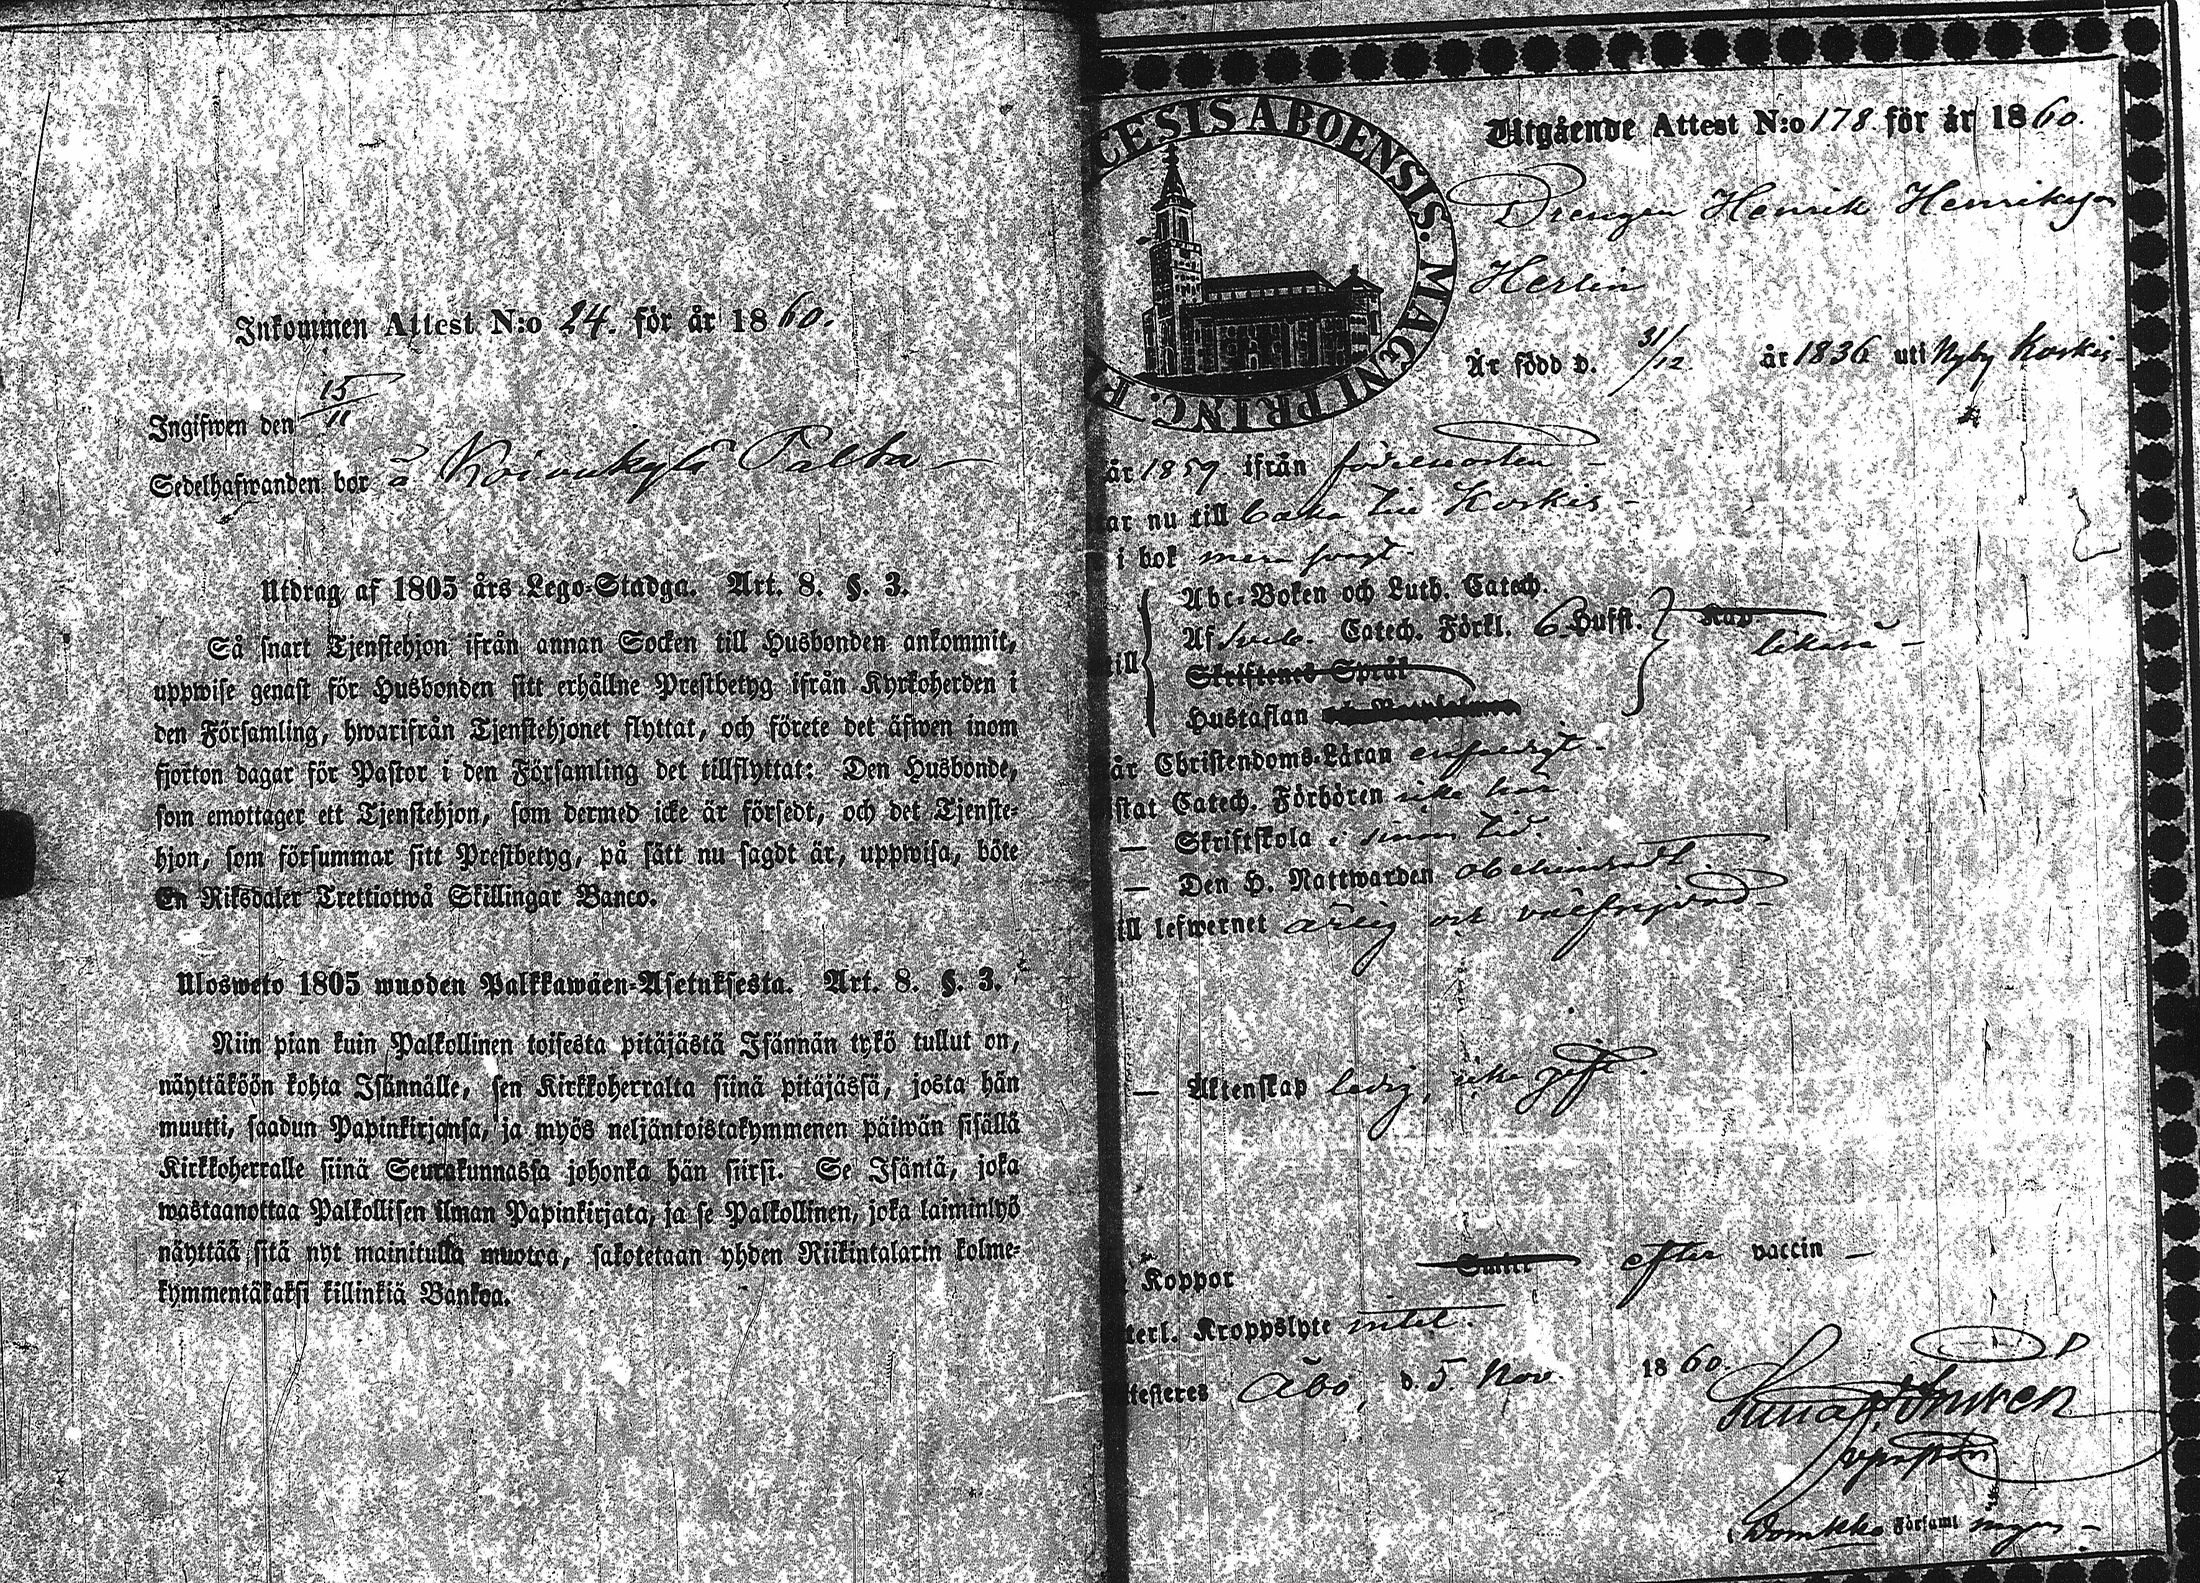 Inkommen Attest N:o 24. för år 1860.
Ingifwen den 15/11
Sedelhafwanden bor å Koivukylä Palta
Utdrag af 1805 års Lego-Stadga. Art. 8. §. 3.
Så snart Tjenstehjon ifrån annan Socken till Husbonden ankommit,
uppwise genast för Husbonden sitt erhållne Prestbetyg ifrån Kyrkoherden i
den Församling, hwarifrån Tjenstehjonet flyttat, och förete det äfwen inom
fjorton dagar för Pastor i den Församling det tillflyttat: Den Husbonde,
som emottager ett Tjenstehjon, som dermed icke är försedt, och det Tjenste-
hjon, som försummar sitt Prestbetyg, på sätt nu sagdt är, uppwisa, böte
En Riksdaler Trettiotwå Skillingar Banco.
Ulosweto 1805 wuoden Palkkawäen-Asetuksesta. Art. 8. §. 3.
Niin pian kuin Palkollinen toisesta pitäjästä Isännän tykö tullut on,
näyttäköön kohta Isännälle, sen Kirkkoherralta siinä pitäjässä, josta hän
muutti, saadun Papinkirjansa, ja myös neljäntoistakymmenen päiwän sisällä
Kirkkoherralle siinä Seurakunnassa johonka hän siirsi. Se Isäntä, joka
wastaanottaa Palkollisen ilman Papinkirjata, ja se Palkollinen, joka laiminlyö
näyttää sitä nyt mainitulla muotoa, sakotetaan yhden Riikintalarin kolme-
kymmentäkaksi killinkiä Bankoa.
CESIS ABOENSIS. MAGNI PRINC. F
Utgående Attest N:o 178 för år 1860.
Drengen Henrik Henriksson
Herlin
Är född d. 31/12. år 1836 uti Nyby Korkis
år 1859 ifrån födelseorten
ar nu till baka till Korkis
i bok
Abc-Boken och Luth. Catech.
Af Sveb. Catech. Förkl. 6 Hufst. Kap
likaså
ill Skriftenes Språk
Hustaflan
år Christendoms-Läran enfaldigt
istat Catech. Förhören icke här
— Skriftskola i sinom tid.
— Den H. Nattwarden obehindradt
ill lefwernet ärlig och välfrejdad
— Äktenskap ledig, icke gift.
Koppor Smitt efter vaccin
terl. Kroppslyte intet.
testeres Åbo, d. 5. Nov. 1860.
Domkko Församl ingen